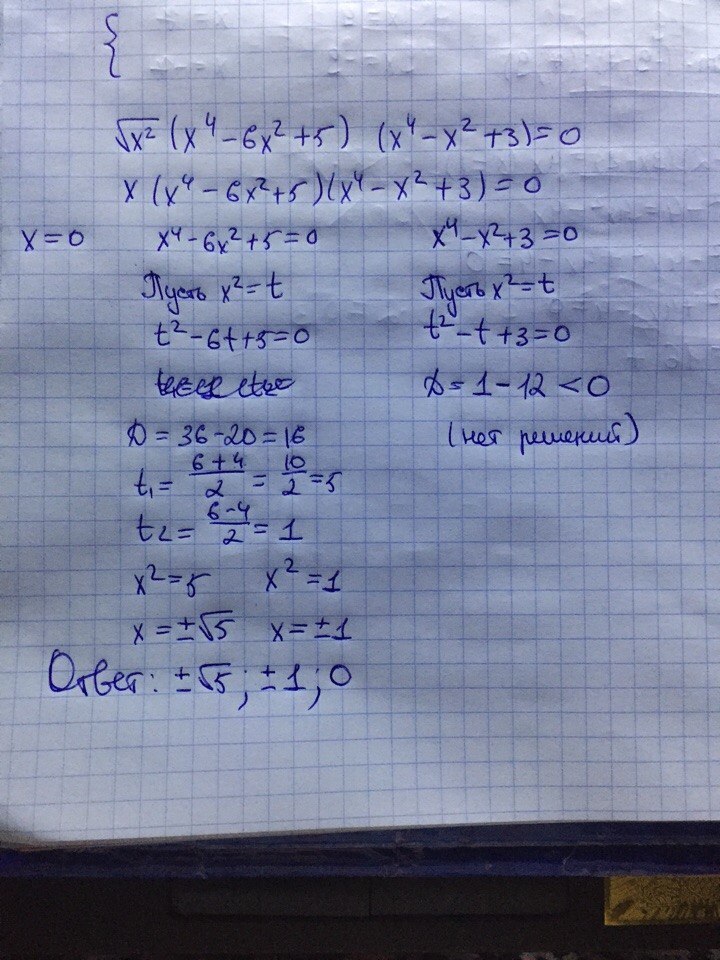 {
√x² (x⁴ - 6x² + 5) (x⁴ - x² + 3) = 0
x (x⁴ - 6x² + 5)(x⁴ - x² + 3) = 0
x = 0 x⁴ - 6x² + 5 = 0 x⁴ - x² + 3 = 0
Пусть x² = t Пусть x² = t
t² - 6t + 5 = 0 t² - t + 3 = 0
D = 1 - 12 < 0
D = 36 - 20 = 16 (нет решений)
t₁ = (6+4)/2 = 10/2 = 5
t₂ = (6-4)/2 = 1
x² = 5 x² = 1
x = ±√5 x = ±1
Ответ: ±√5; ±1; 0